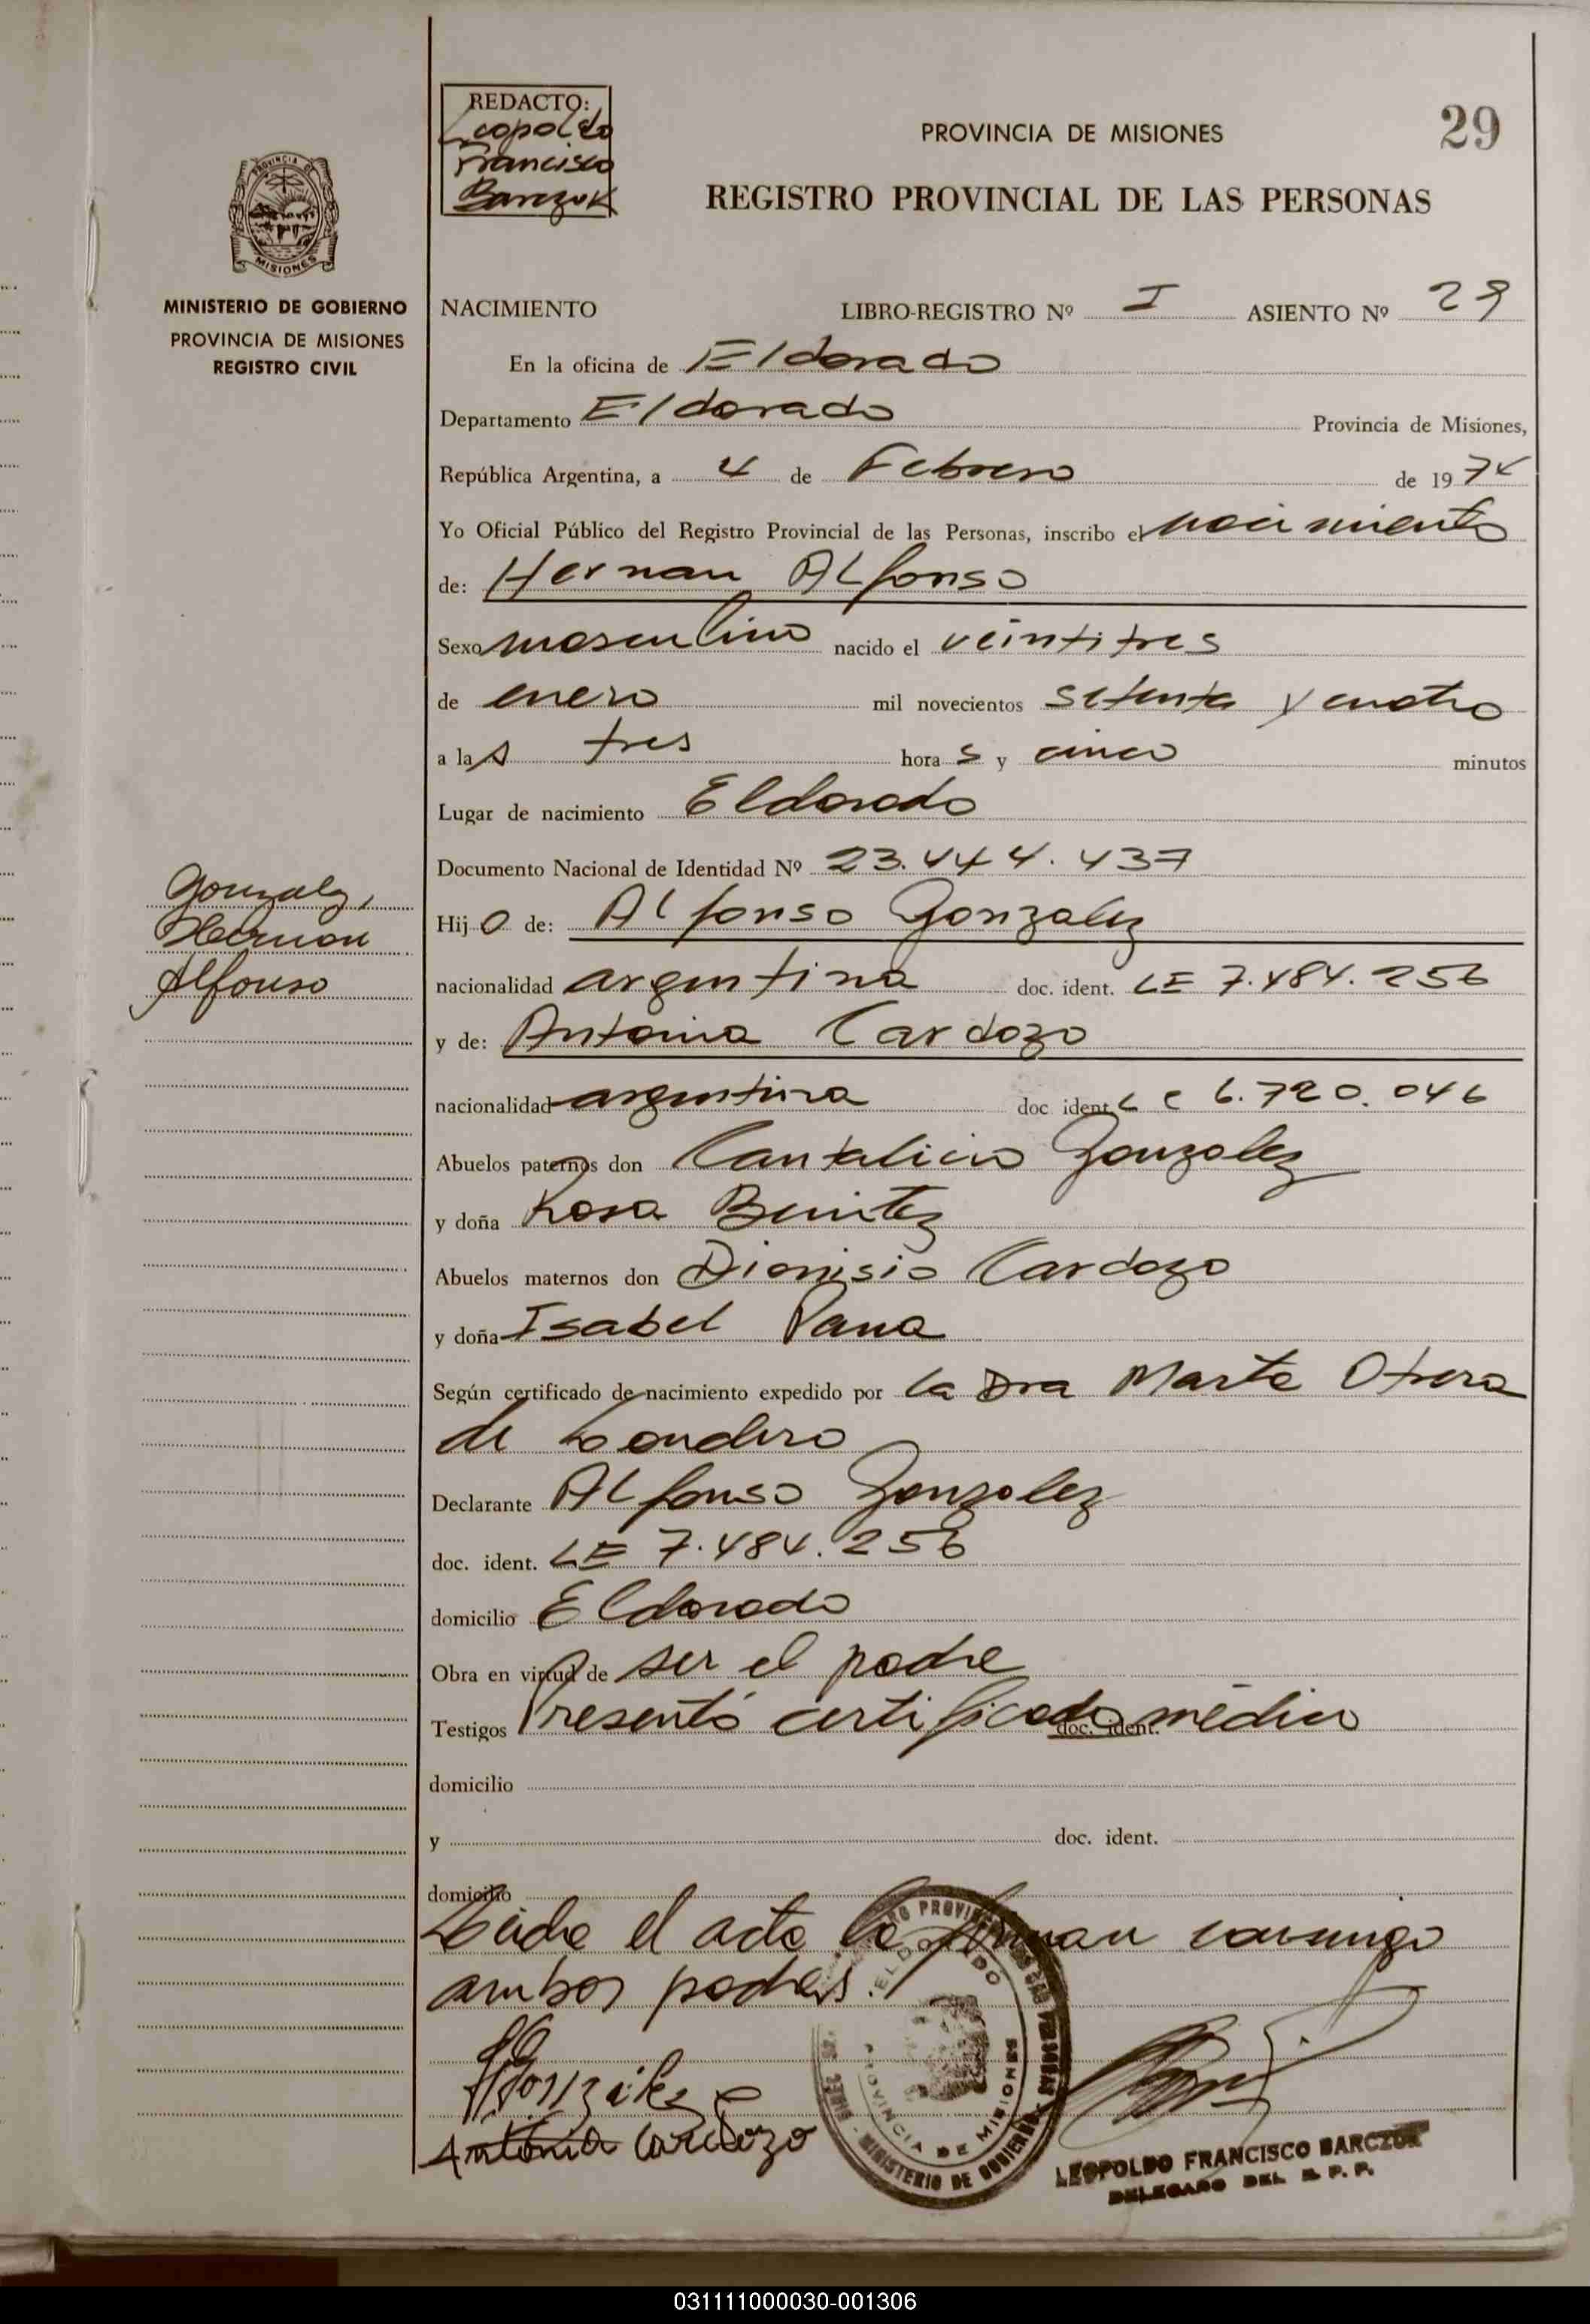 REDACTO:
Leopoldo
Francisco
Barczuk
PROVINCIA DE MISIONES
29
REGISTRO PROVINCIAL DE LAS PERSONAS
PROVINCIA DE
MISIONES
MINISTERIO DE GOBIERNO
PROVINCIA DE MISIONES
REGISTRO CIVIL
NACIMIENTO LIBRO-REGISTRO Nº I ASIENTO Nº 29
En la oficina de Eldorado
Departamento Eldorado Provincia de Misiones,
República Argentina, a 4 de Febrero de 1974
Yo Oficial Público del Registro Provincial de las Personas, inscribo el nacimiento
de: Hernan Alfonso
Sexo masculino nacido el veintitres
de enero mil novecientos setenta y cuatro
a las tres horas y cinco minutos
Lugar de nacimiento Eldorado
Documento Nacional de Identidad Nº 23.444.437
Gonzalez,
Hernan
Alfonso
Hijo de: Alfonso Gonzalez
nacionalidad argentina doc. ident. LE 7.484.256
y de: Antonia Cardozo
nacionalidad argentina doc. ident. L C 6.720.046
Abuelos paternos don Cantalicio Gonzalez
y doña Rosa Benitez
Abuelos maternos don Dionisio Cardozo
y doña Isabel
Según certificado de nacimiento expedido por la Dra Marta
de
Declarante Alfonso Gonzalez
doc. ident. LE 7.484.256
domicilio Eldorado
Obra en virtud de ser el padre
Testigos Presentó certificado médico doc. ident.
domicilio
y doc. ident.
domicilio
Leida el acta la firman conmigo
ambos padres.
AGonzález
Antonia Cardozo
ELDORADO
PROVINCIA DE MISIONES
MINISTERIO DE GOBIERNO
LEOPOLDO FRANCISCO BARCZUK
DELEGADO DEL R. P. P.
031111000030-001306